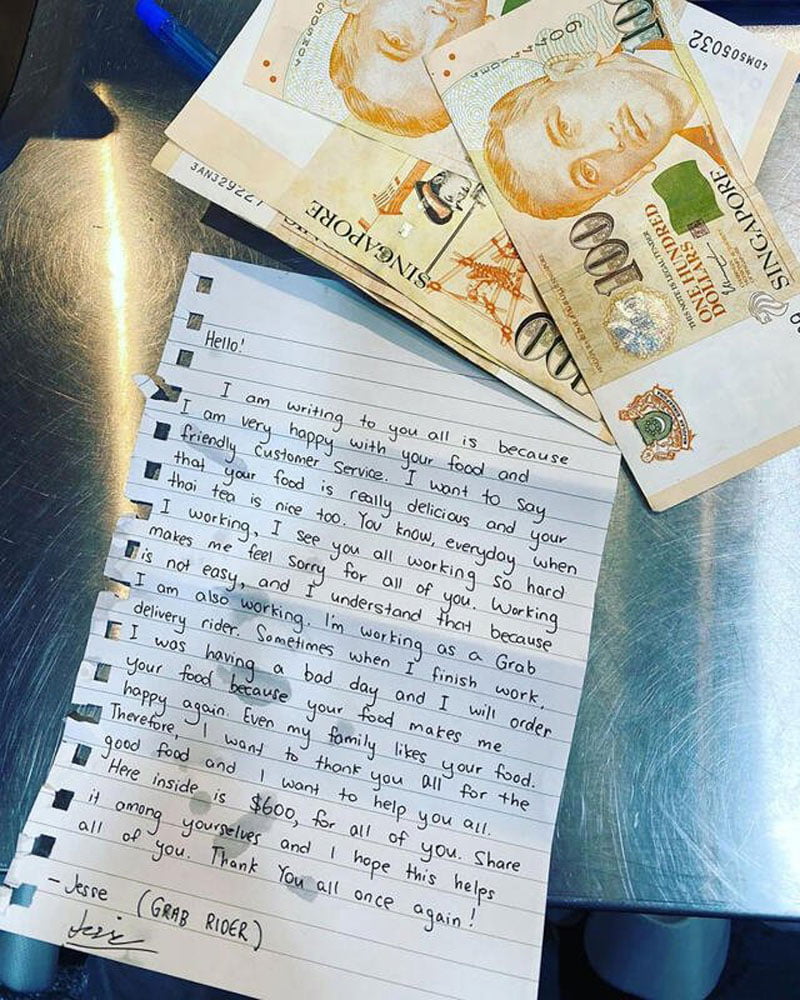 4DM505032
SINGAPORE
ONE HUNDRED
DOLLARS
THIS NOTE IS LEGAL TENDER
100
3AN329227
SINGAPORE
100
Hello!
I am writing to you all is because
I am very happy with your food and
friendly customer service. I want to say
that your food is really delicious and your
thai tea is nice too. You know, everyday when
I working, I see you all working so hard
makes me feel sorry for all of you. Working
is not easy, and I understand that because
I am also working. I'm working as a Grab
delivery rider. Sometimes when I finish work,
I was having a bad day and I will order
your food because your food makes me
happy again. Even my family likes your food.
Therefore, I want to thank you all for the
good food and I want to help you all.
Here inside is $600, for all of you. Share
it among yourselves and I hope this helps
all of you. Thank You all once again!
- Jesse (GRAB RIDER)